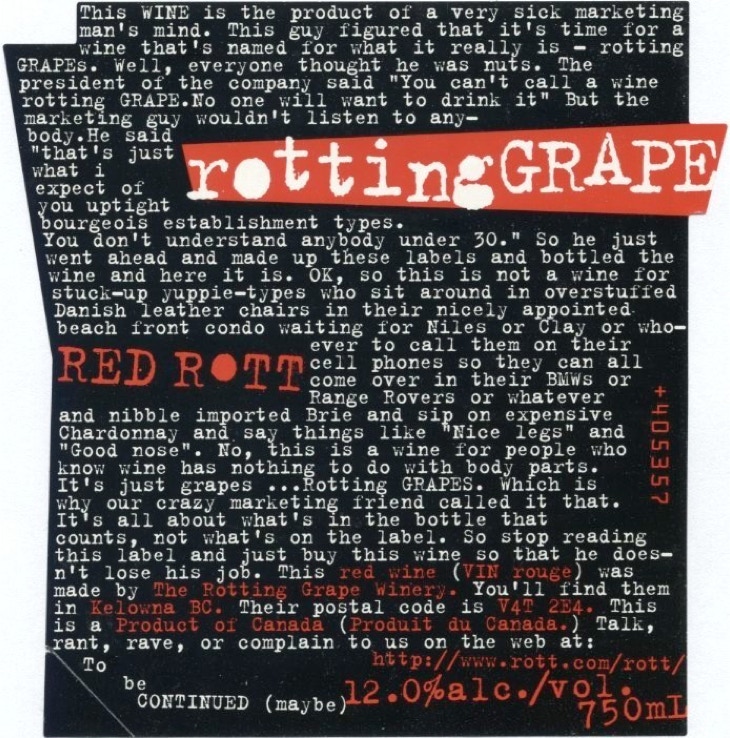 This WINE is the product of a very sick marketing
man's mind. This guy figured that it's time for a
wine that's named for what it really is - rotting
GRAPEs. Well, everyone thought he was nuts. The
president of the company said "You can't call a wine
rotting GRAPE.No one will want to drink it" But the
marketing guy wouldn't listen to any-
body.He said
"that's just
what i
expect of
you uptight
rottingGRAPE
bourgeois establishment types.
You don't understand anybody under 30." So he just
went ahead and made up these labels and bottled the
wine and here it is. OK, so this is not a wine for
stuck-up yuppie-types who sit around in overstuffed
Danish leather chairs in their nicely appointed
beach front condo waiting for Niles or Clay or who-
ever to call them on their
cell phones so they can all
come over in their BMWs or
Range Rovers or whatever
RED ROTT
and nibble imported Brie and sip on expensive
Chardonnay and say things like "Nice legs" and
"Good nose". No, this is a wine for people who
know wine has nothing to do with body parts.
It's just grapes ...Rotting GRAPES. Which is
why our crazy marketing friend called it that.
It's all about what's in the bottle that
counts, not what's on the label. So stop reading
this label and just buy this wine so that he does-
n't lose his job. This red wine (VIN rouge) was
made by The Rotting Grape Winery. You'll find them
in Kelowna BC. Their postal code is V4T 2E4. This
is a Product of Canada (Produit du Canada.) Talk,
rant, rave, or complain to us on the web at:
http://www.rott.com/rott/
To
be
CONTINUED (maybe)
12.0%alc./vol.
750mL
+405357